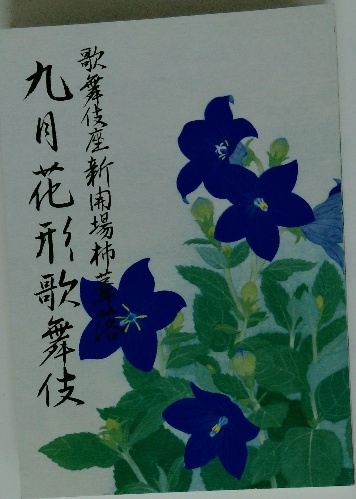 歌舞伎座新開場柿葺落
九月花形歌舞伎